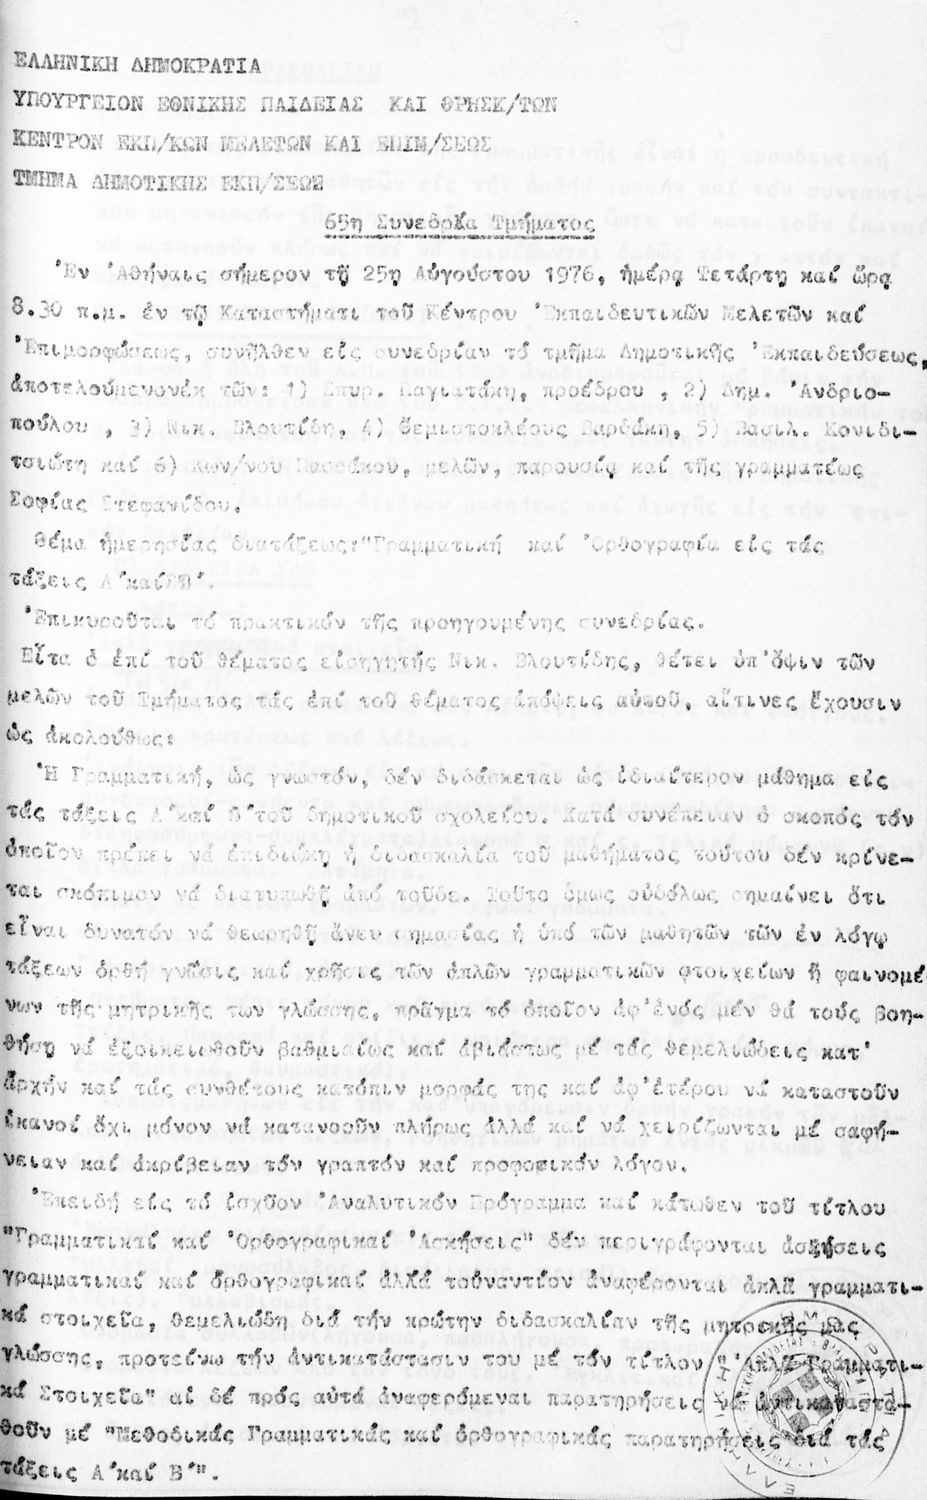 ΕΛΛΗΝΙΚΗ ΔΗΜΟΚΡΑΤΙΑ
ΥΠΟΥΡΓΕΙΟΝ ΕΘΝΙΚΗΣ ΠΑΙΔΕΙΑΣ ΚΑΙ ΘΡΗΣΚ/ΤΩΝ
ΚΕΝΤΡΟΝ ΕΚΠ/ΚΩΝ ΜΕΛΕΤΩΝ ΚΑΙ ΕΠΙΜ/ΣΕΩΣ
ΤΜΗΜΑ ΔΗΜΟΤΙΚΗΣ ΕΚΠ/ΣΕΩΣ
65η Συνεδρία Τμήματος
Ἐν Ἀθήναις σήμερον τῇ 25η Αὐγούστου 1976, ἡμέρᾳ Τετάρτῃ καί ὥρᾳ
8.30 π.μ. ἐν τῷ Καταστήματι τοῦ Κέντρου Ἐκπαιδευτικῶν Μελετῶν καί
Ἐπιμορφώσεως, συνῆλθεν εἰς συνεδρίαν τό τμῆμα Δημοτικῆς Ἐκπαιδεύσεως,
ἀποτελούμενονἐκ τῶν: 1) Σπυρ. Παγιατάκη, προέδρου , 2) Δημ. Ἀνδριο-
πούλου , 3) Νικ. Βλουτίδη, 4) Θεμιστοκλέους Βαρδάκη, 5) Βασιλ. Κονιδι-
τσιώτη καί 6) Κων/νου μελῶν, παρουσίᾳ καί τῆς γραμματέως
Σοφίας Στεφανίδου.
Θέμα ἡμερησίας διατάξεως:"Γραμματική καί Ὀρθογραφία εἰς τάς
τάξεις Α΄καί Β΄.
Ἐπικυροῦται τό πρακτικόν τῆς προηγουμένης συνεδρίας.
Εἶτα ὁ ἐπί τοῦ θέματος εἰσηγητής Νικ. Βλουτίδης, θέτει ὑπ'ὄψιν τῶν
μελῶν τοῦ Τμήματος τάς ἐπί τοῦ θέματος ἀπόψεις αὐτοῦ, αἵτινες ἔχουσιν
ὡς ἀκολούθως:
Ἡ Γραμματική, ὡς γνωστόν, δέν διδάσκεται ὡς ἰδιαίτερον μάθημα εἰς
τάς τάξεις Α΄καί Β΄τοῦ δημοτικοῦ σχολείου. Κατά συνέπειαν ὁ σκοπός τόν
ὁποῖον πρέπει νά ἐπιδιώκῃ ἡ διδασκαλία τοῦ μαθήματος τούτου δέν κρίνε-
ται σκόπιμον νά διατυπωθῇ ἀπό τοῦδε. Τοῦτο ὅμως οὐδόλως σημαίνει ὅτι
εἶναι δυνατόν νά θεωρηθῇ ἄνευ σημασίας ἡ ὑπό τῶν μαθητῶν τῶν ἐν λόγῳ
τάξεων ὀρθή γνῶσις καί χρῆσις τῶν ἁπλῶν γραμματικῶν στοιχείων ἤ φαινομέ
νων τῆς μητρικῆς των γλώσσης, πρᾶγμα τό ὁποῖον ἀφ'ἑνός μέν θά τούς βοη-
θήσῃ νά ἐξοικειωθοῦν βαθμιαίως καί ἀβιάστως μέ τάς θεμελιώδεις κατ'
ἀρχήν καί τάς συνθέτους κατόπιν μορφάς της καί ἀφ'ἑτέρου νά καταστοῦν
ἱκανοί ὄχι μόνον νά κατανοοῦν πλήρως ἀλλά καί νά χειρίζωνται μέ σαφή-
νειαν καί ἀκρίβειαν τόν γραπτόν καί προφορικόν λόγον.
Ἐπειδή εἰς τό ἰσχῦον Ἀναλυτικόν Πρόγραμμα καί κάτωθεν τοῦ τίτλου
"Γραμματικαί καί Ὀρθογραφικαί Ἀσκήσεις" δέν περιγράφονται ἀσκήσεις
γραμματικαί καί ὀρθογραφικαί ἀλλά τοὐναντίον ἀναφέρονται ἁπλᾶ γραμματι-
κά στοιχεῖα, θεμελιώδη διά τήν πρώτην διδασκαλίαν τῆς μητρικῆς μας
γλώσσης, προτείνω τήν ἀντικατάστασιν του μέ τόν τίτλον " Ἁπλᾶ Γραμματι-
κά Στοιχεῖα" αἱ δέ πρός αὐτά ἀναφερόμεναι παρατηρήσεις νά ἀντικαταστα-
θοῦν μέ "Μεθοδικάς Γραμματικάς καί ὀρθογραφικάς παρατηρήσεις διά τάς
τάξεις Α΄καί Β΄".